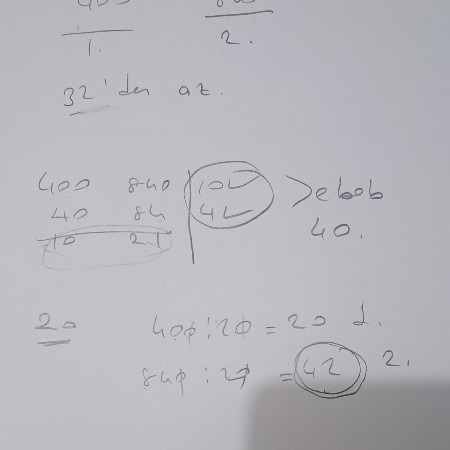 400
1. 2.
32'den az.
400 840 10✓ > ebob
40 84 4✓ 40.
10 21
20 400:20 = 20 1.
840:20 = 42 2.